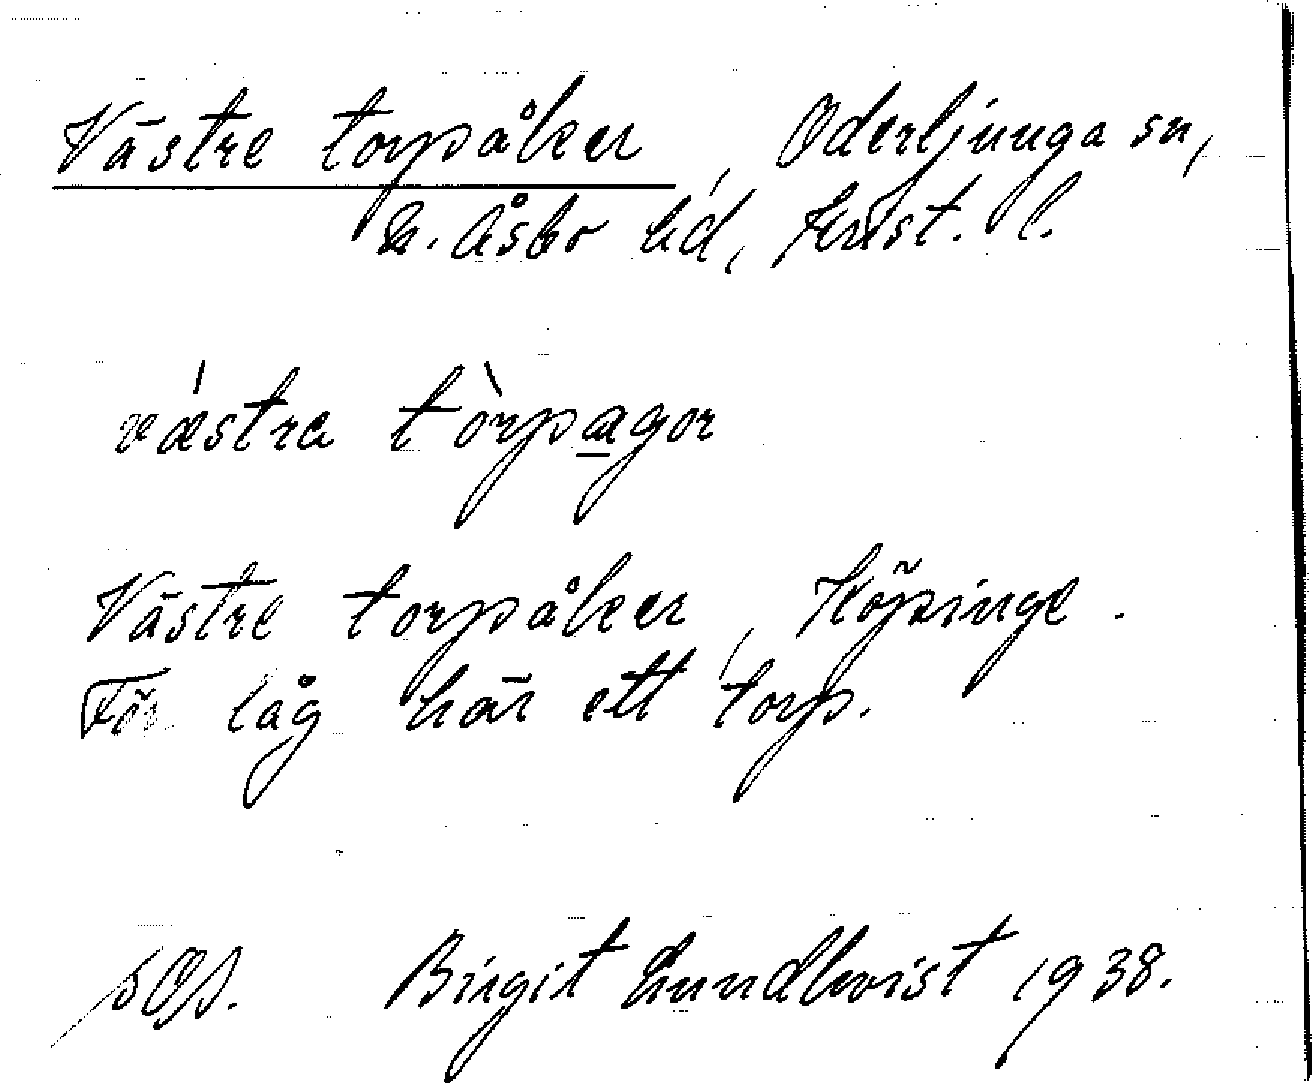 Västre torpåker, Oderljunga sn,
N. Åsbo hd, Krist. l.
væstra tòrpagor
Västre torpåker, Köpinge.
Förr låg här ett torp.
Birgit Lundkvist 1938.